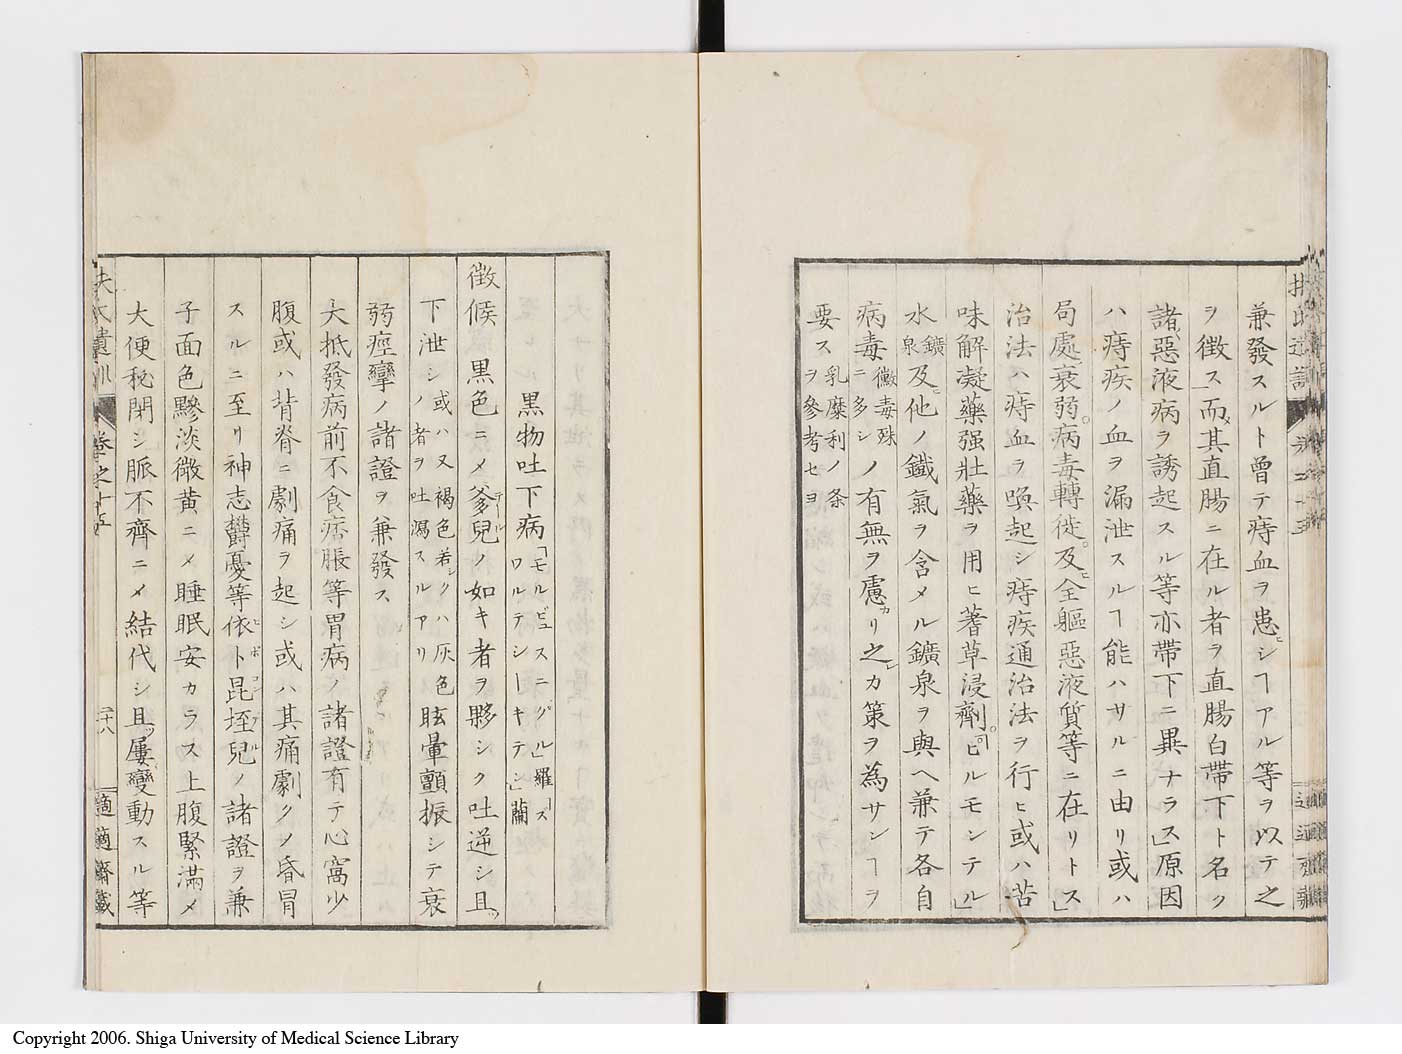 兼發スルト曾テ痔血ヲ患ヒシヿアル等ヲ以テ之
ヲ徴ス」而メ其直腸ニ在ル者ヲ直腸白帶下ト名ク
諸惡液病ヲ誘起スル等亦帶下ニ異ナラス」原因
ハ痔疾ノ血ヲ漏泄スルヿ能ハサルニ由リ或ハ
局處衰弱。病毒轉徙。及ヒ全軀惡液質等ニ在リトス」
治法ハ痔血ヲ喚起シ痔疾通治法ヲ行ヒ或ハ苦
味解凝藥强壯藥ヲ用ヒ蓍草浸劑。「ピルモンテル」
水鑛泉及ヒ他ノ鐵氣ヲ含メル鑛泉ヲ與ヘ兼テ各自
病毒黴毒殊ニ多シノ有無ヲ慮カリ之レカ策ヲ為サンヿヲ
要ス乳糜利ノ条ヲ參考セヨ
黒物吐下病「モルビュスニグル」羅「ワルテシーキテン」蘭
徴候 黒色ニメ爹兒テールノ如キ者ヲ夥シク吐逆シ且ツ
下泄シ或ハ又褐色若シクハ灰色ノ者ヲ吐瀉スルアリ眩暈顫振シテ衰
弱痙攣ノ諸證ヲ兼發ス
大抵發病前不食痞脹等胃病ノ諸證有テ心窩少
腹或ハ背脊ニ劇痛ヲ起シ或ハ其痛劇クメ昏冒
スルニ至リ神志欝憂等依ヒト昆ポコン垤デル兒ノ諸證ヲ兼
子面色黲淡微黄ニメ睡眠安カラス上腹緊滿メ
大便秘閉シ脈不齊ニメ結代シ且ツ屢變動スル等
扶氏遺訓 巻之十五 二十八 適適齋藏